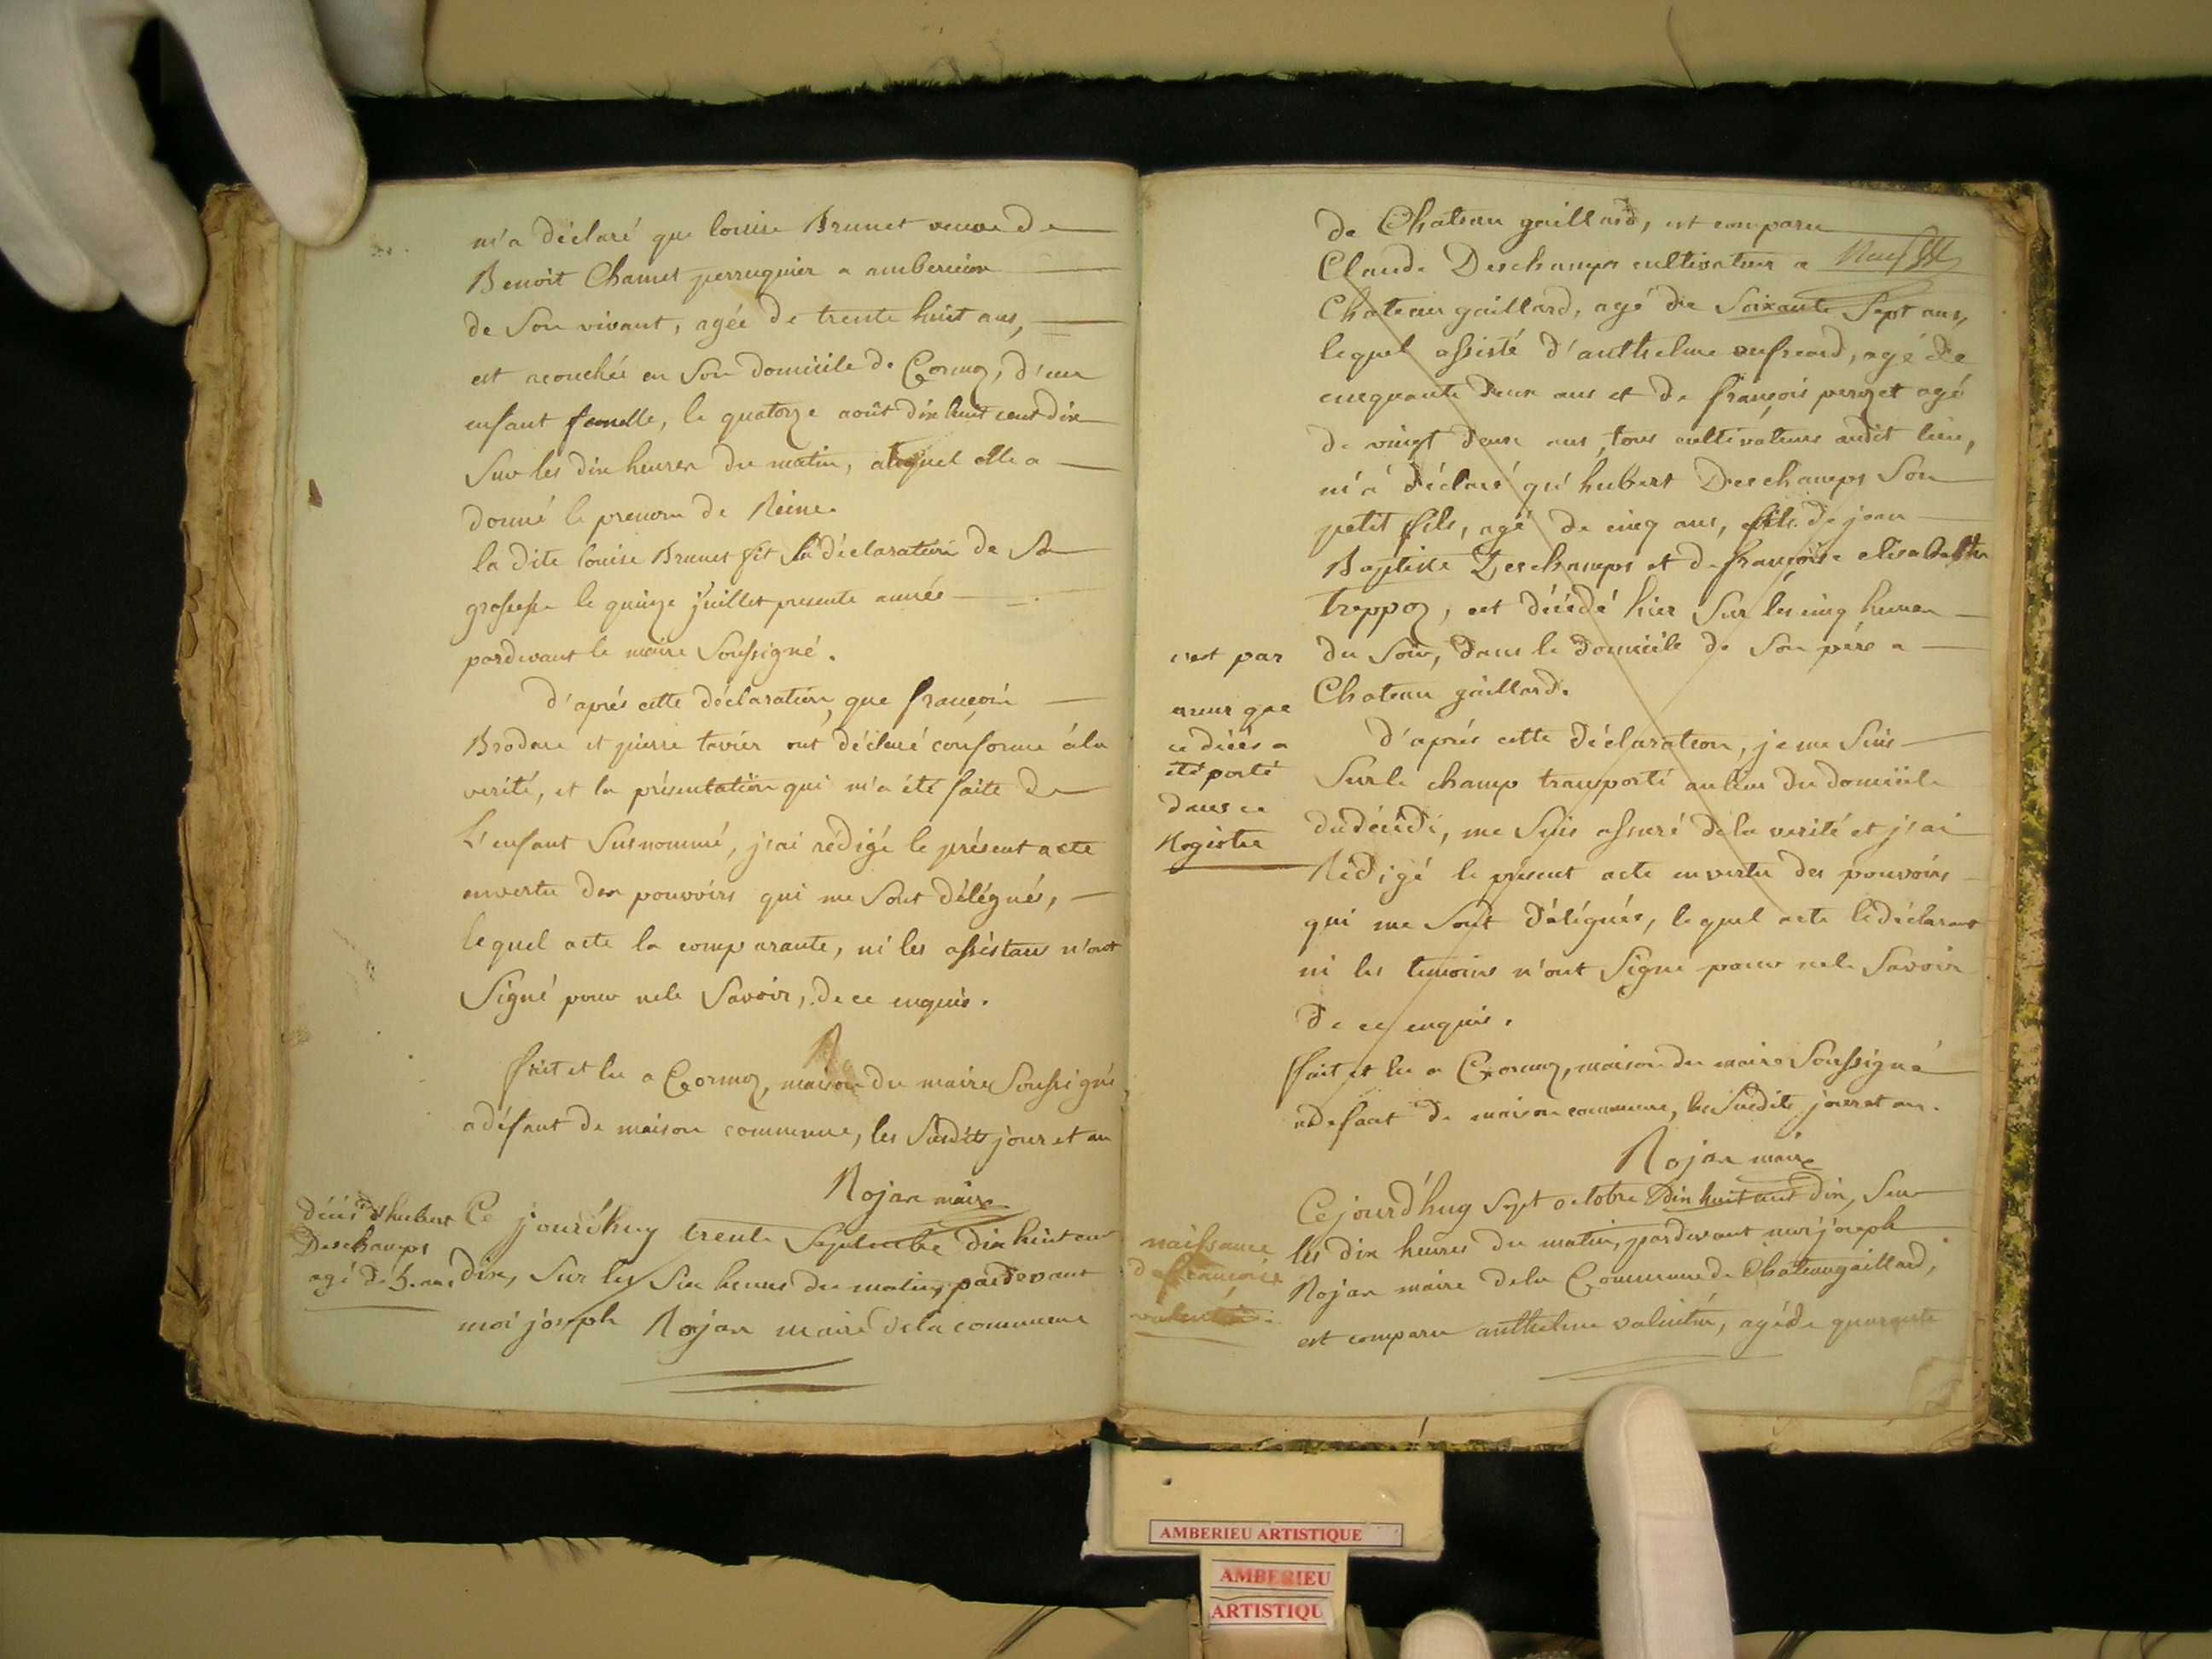 m'a déclaré que louise Brunet veuve de
Benoit Chamet perruquier a amberieux
de Son vivant, agée de trente huit ans,
est acouchée en Son domicile de Cormoz, d'un
enfant femelle, le quatorze août dix huit cent dix
Sur les dix heures du matin, auquel elle a
donné le prenom de Reine.
la dite louise Brunet fit la déclaration de Sa
grossesse le quinze juillet presente année
pardevant le maire Soussigné.
d'aprés cette déclaration, que françois
Brodare et pierre tavier ont déclaré conforme á la
verité, et la présentation qui m'a été faite de
L'enfant Susnommé, j'ai rédigé le présent acte
en vertu des pouvoirs qui me Sont délégués,
lequel acte la comparante, ni les assistans n'ont
Signé pour ne le Savoir, de ce enquis.
fait et lu a Cormoz, maison du maire Soussigné
a défaut de maison commune, les Susdits jour et an
Rojan maire
décés d'hubert
Deschamps
agé de 5. ans
Ce jourd'huy trente Septembre dix huit cent
dix, Sur les Six heures du matin, pardevant
moi joseph Rojan maire de la commune
de Chateau gaillard, est comparu
Claude Deschamps cultivateur a
Chateau gaillard, agé de Soixante Sept ans,
lequel assisté d'anthelme agé de
cinquante deux ans et de françois perozet agé
de vingt deux ans, tous cultivateurs audit lieu,
m'a déclaré qu'hubert Deschamps Son
petit fils, agé de cinq ans, fils de jean
Baptiste Deschamps et de françoise elisabeth
treppoz, est décédé hier Sur les cinq heures
du Soir, dans le domicile de Son pére a
Chateau gaillard.
c'est par
erreur que
ce décés a
été porté
dans ce
Registre
d'aprés cette déclaration, je me Suis
Sur le champ transporté au lieu du domicile
du décédé, me Suis assuré de la verité et j'ai
Rédigé le present acte en vertu des pouvoirs
qui me Sont délégués, lequel acte le déclarant
ni les temoins n'ont Signé pour ne le Savoir
de ce enquis.
fait et lu a Cormoz, maison du maire Soussigné
a defaut de maison commune, les Susdits jour et an.
Rojan maire
naissance
de françoise
valentin
Cejourd'huy Sept octobre Dix huit cent dix, Sur
les dix heures du matin, pardevant moi joseph
Rojan maire de la Commune de Chateaugaillard,
est comparu anthelme valentin, agé de quarante
AMBERIEU ARTISTIQUE
AMBERIEU
ARTISTIQU